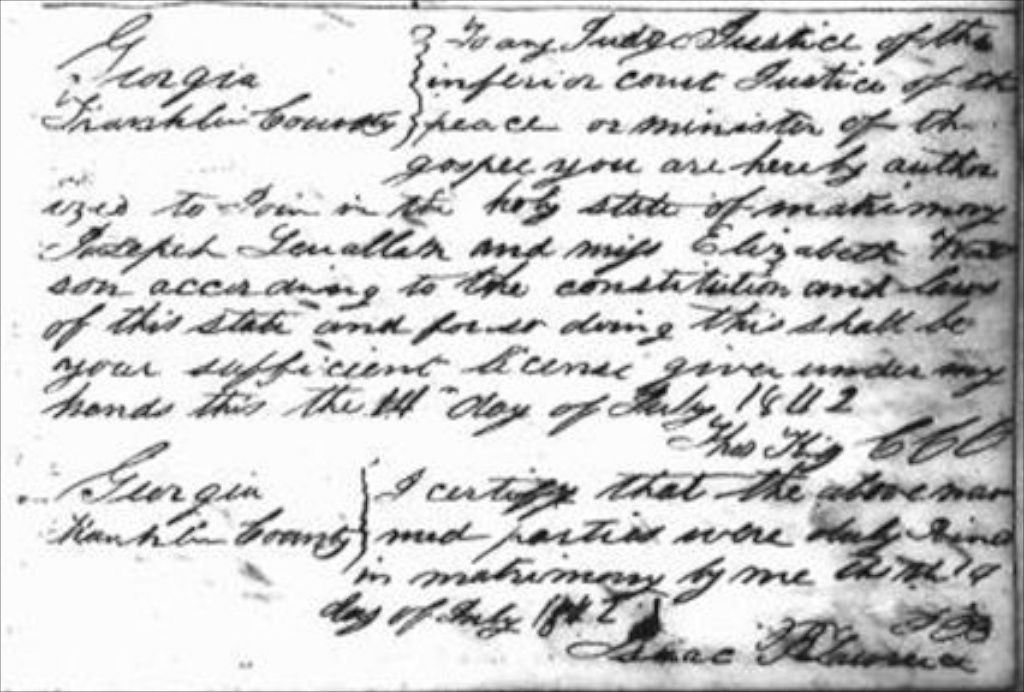 Georgia } To any Judge Justice of the
inferior court Justice of th
Franklin County } peace or minister of th
gospel you are hereby author
ized to Join in the holy state of matrimony
and miss Elizabeth Wat
son according to the constitution and laws
of this state and for so doing this shall be
your sufficient license given under my
hands this the 14th day of July 1842
Thos King CCO
Georgia } I certify that the above nam
Franklin County } med parties were duly Jined
in matrimony by me this the
day of July 1842
Isaac